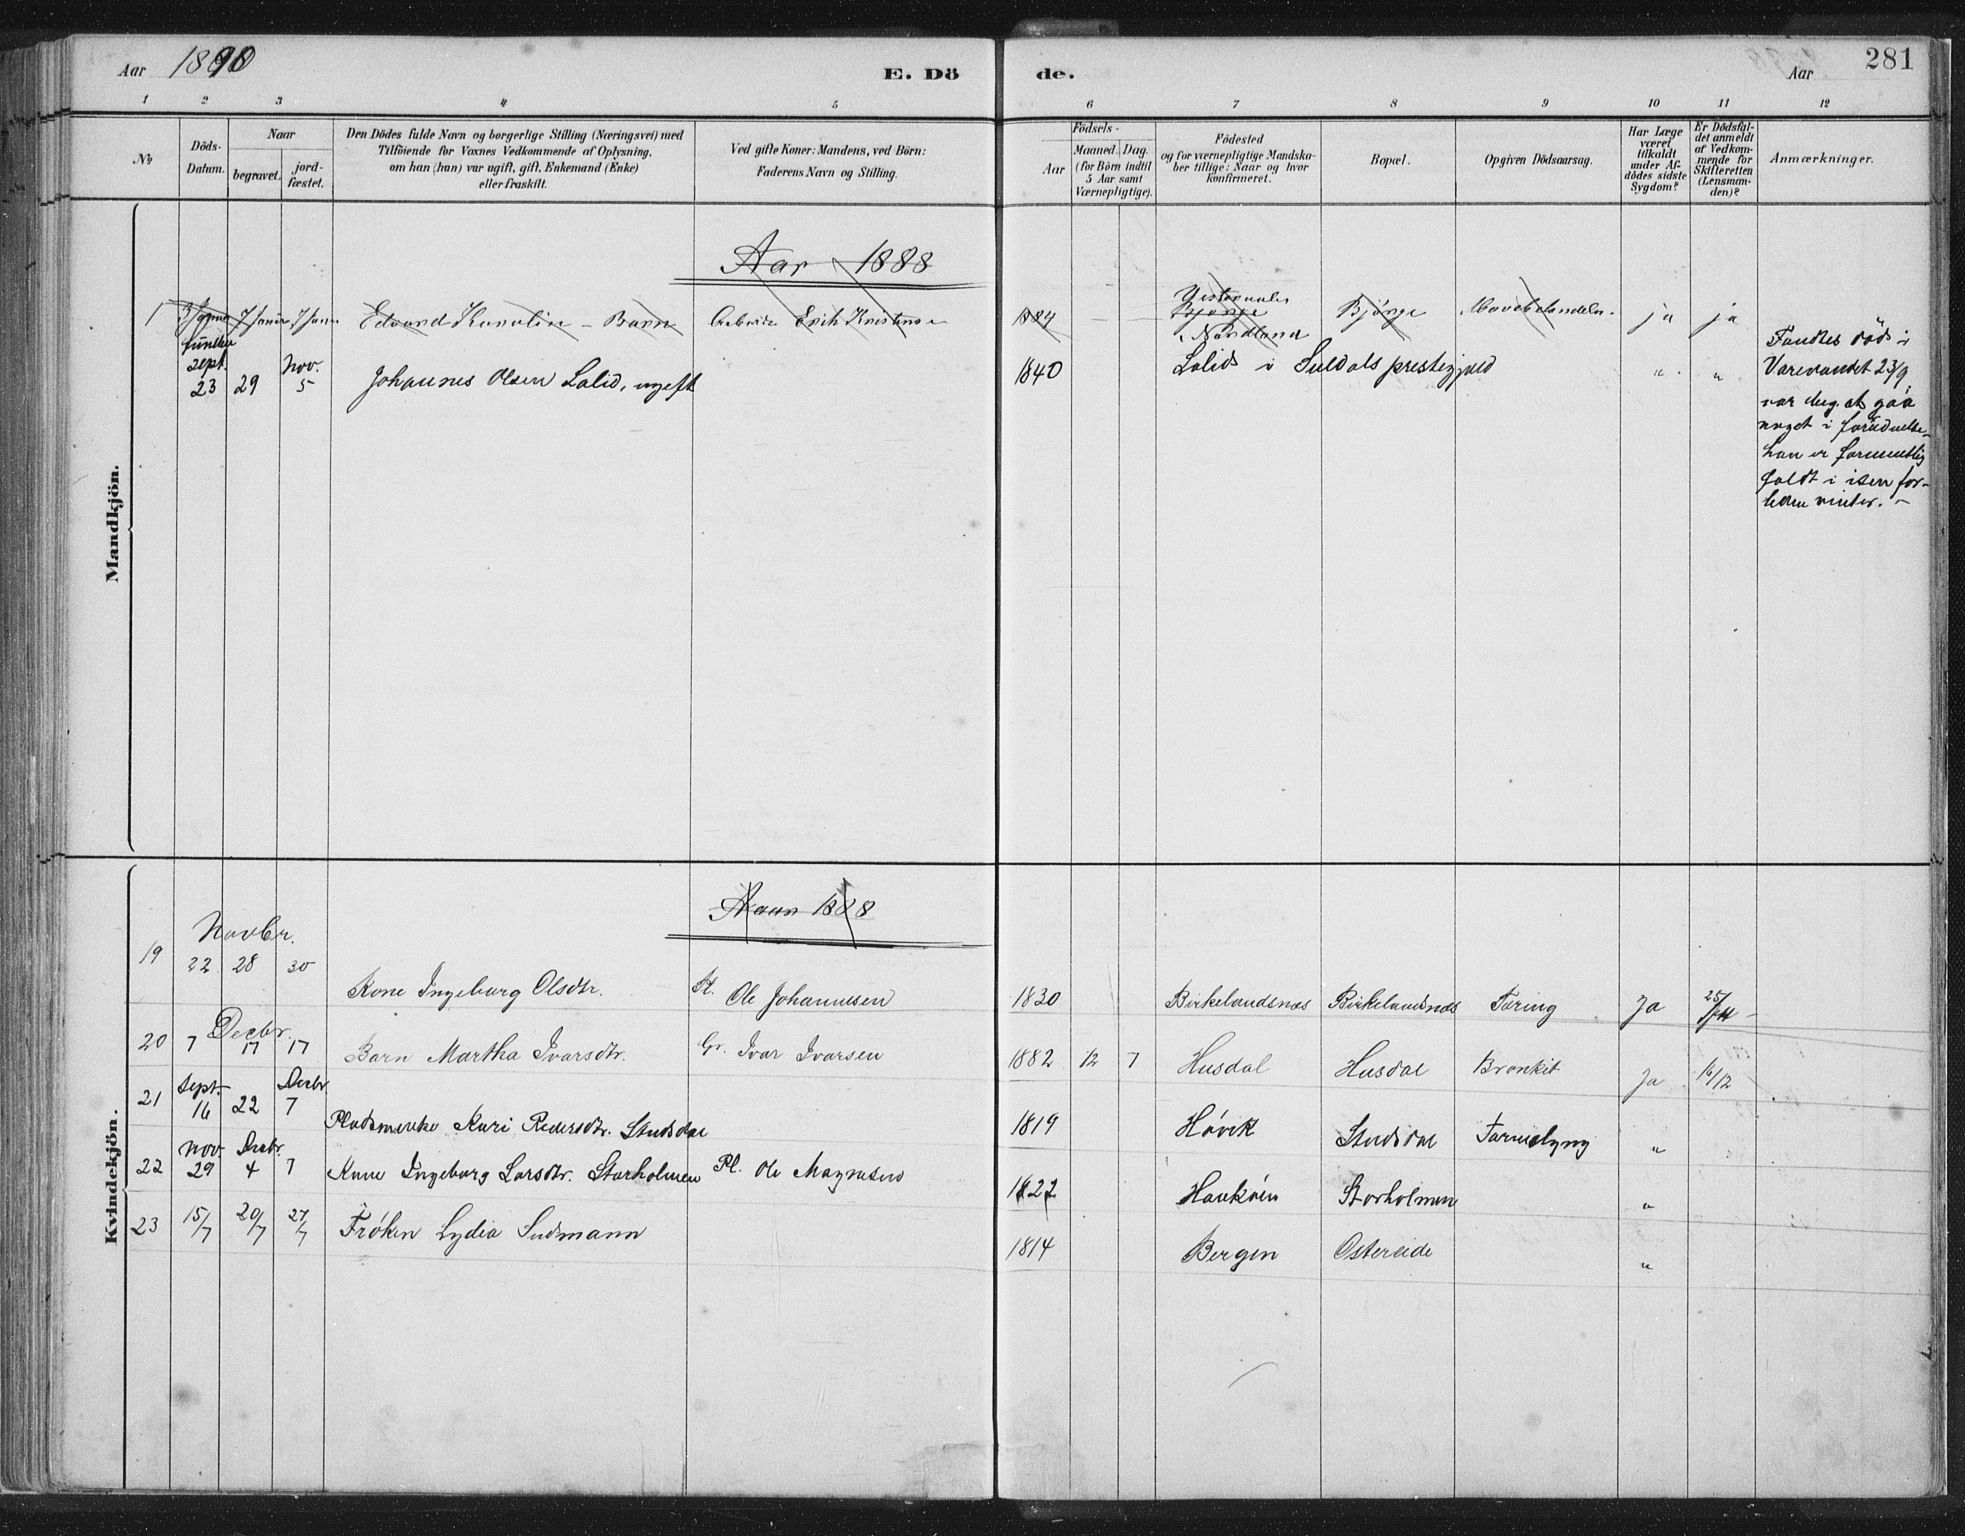 Aar 1890 E. Dö de. Aar 281
1 2 3 4 5 6 7 8 9 10 11 12
№
Döds-
Datum.
Naar
begravet. jord-
fæstet.
Den Dödes fulde Navn og borgerlige Stilling (Næringsvei) med
Tilföiende for Voxnes Vedkommende af Oplysning,
om han (hun) var ugift, gift, Enkemand (Enke)
eller fraskilt.
Ved gifte Koner: Mandens, ved Börn:
Faderens Navn og Stilling.
Födsels-
Aar Maaned. Dag.
(for Börn indtil
5 Aar samt
Værnepligtige).
Födested
og for værnepligtige Mandska-
ber tillige: Naar og hvor
konfirmeret.
Bopæl.
Opgiven Dödsaarsag.
Har Læge
været
tilkaldt
under Af-
dödes sidste
Sygdom?
Er Dödsfal-
det anmeldt
af Vedkom-
mende for
Skifteretten
(Lensman-
den)?
Anmærkninger.
Mandkjön.
Aar 1888
1 7 7 Edvard Karolin - Barn Erik Kristense 1884 Bjønge Nordland Bjönge ja ja
funden
sept. 23 29 Nov. 5 Johannes Olsen Lalid, ugift 1840 Lalid i Suldals prestegjæld " "
Fandtes död i
Varevandet 23/9
var beg. at gaa
noget i
han er formentlig
faldt i isen for-
leden vinter. -
Kvindekjön.
Aaar 1888
Novbr.
19 22 28 30 Kone Ingeborg Olsdtr. Ole Johannesen 1830 Birkelandsnæs Birkelandsnæs Tæring Ja 25/11 -
Decbr.
20 7 17 17 Barn Martha Ivarsdtr. Gr. Ivar Ivarsen 1882 12 7 Husdal Husdal Bronkit Ja 16/12
21 Sept. 16 22 Decbr 7 Pladsmenke Kari Pedersdtr. Studsdal 1819 Høvik Studsdal "
22 Nov. 29 Decbr. 4 7 Kone Ingeborg Larsdtr. Storholmen Pl. Ole Magnesen 1822 Haukøen Storholmen "
23 15/7 20/7 27/7 Frøken Lydia Sudmann 1814 Bergen Ostereide "